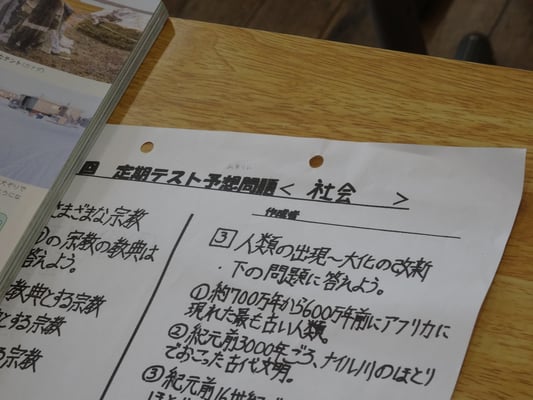 定期テスト予想問題＜ 社会 ＞
作成者
まざまな宗教
の宗教の教典は
答えよう。
教典とする宗教
とする宗教
る宗教
3 人類の出現〜大化の改新
・下の問題に答えよう。
①約700万年から600万年前にアフリカに
現れた最も古い人類。
②紀元前3000年ごろ、ナイル川のほとり
でおこった古代文明。
③紀元前16世紀ご